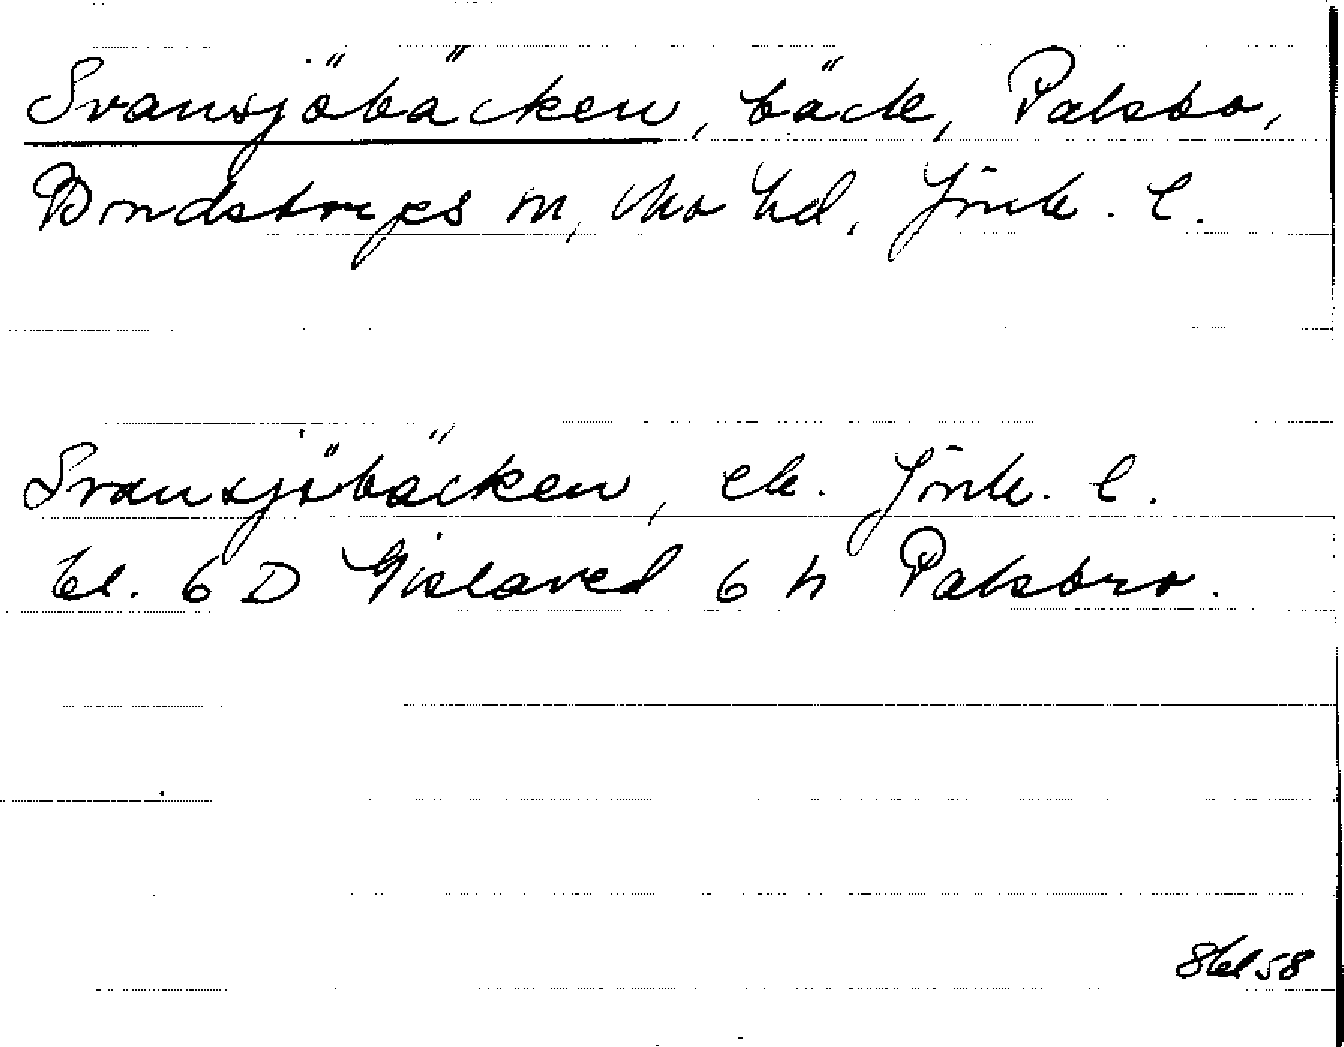 Svansjöbäcken, bäck, Palsbo,
Bondstorps sn, Mo hd, Jönk. l.
Svansjöbäcken, ek. Jönk. l.
bl. 6 D Gislaved 6 h Palsbro.